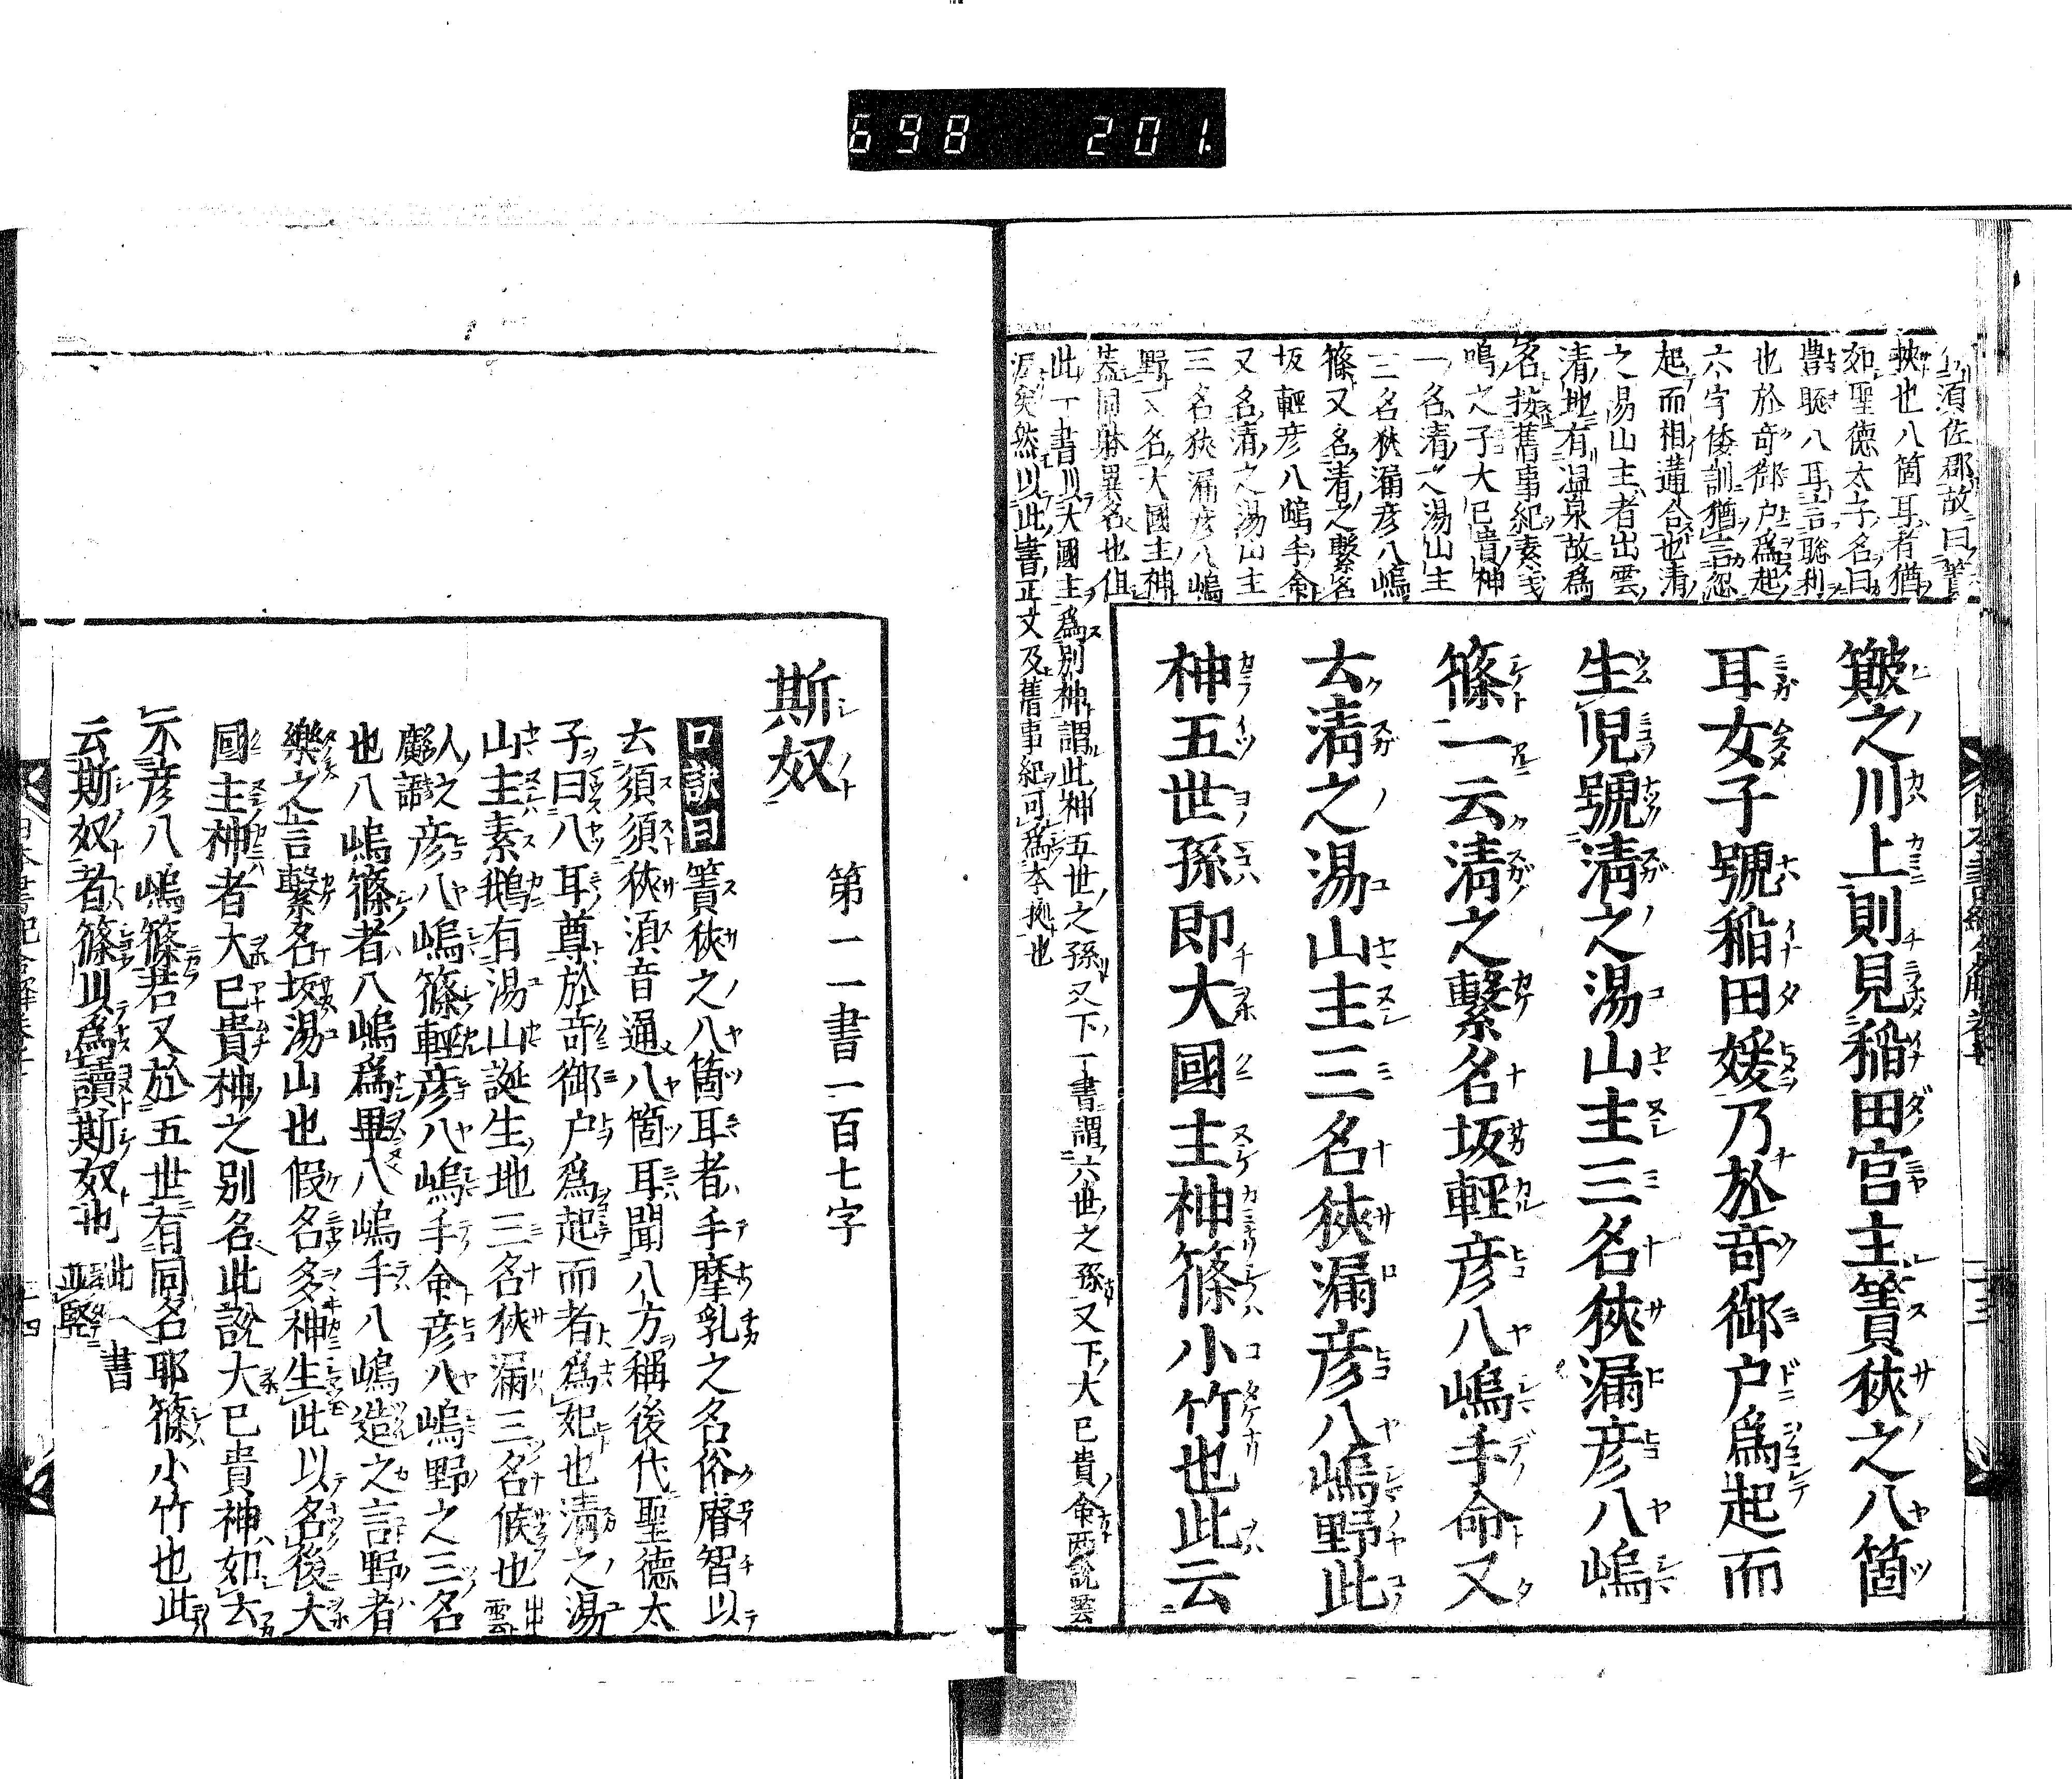 698 201.
須佐郡故曰簀
狹也八箇耳者猶
如聖德太子名曰
豊聡八耳言聡利
也於奇御户爲起
六字倭訓猶言忽
起而相遘合也清
之湯山主者出雲
清地有温泉故爲
名按舊事紀素戔
嗚之子大巳貴神
一名清之湯山主
三名狹漏彦八嶋
篠又名清之繫名
坂輕彦八嶋手命
又名清之湯山主
三名狹漏彦八嶋
野又名大國主神
蓋同躰異名也但
此一書以大國主爲別神謂此神五世之孫又下一書謂六世之孫又下大巳貴命两說蓋
混矣然以此書正文及舊事紀可爲本據也
簸之川上則見稲田宮主簀狹之八箇
耳女子號稲田媛乃於奇御户爲起而
生児號清之湯山主三名狹漏彦八嶋
篠一云清之繫名坂輕彦八嶋手命又
云清之湯山主三名狹漏彦八嶋野此
神五世孫即大國主神篠小竹也此云
斯奴
第一一書一百七字
口訣曰簀狹之八箇耳者手摩乳之名俗磨智以
云須須狹須音通八箇耳聞八方稱後代聖德太
子曰八耳尊於奇御户爲起而者爲妃也清之湯
山主素鵝有湯山誕生地三名狹漏三名候也出雲
人之彦八嶋篠輕彦八嶋手命彦八嶋野之三名
也八嶋篠者八嶋爲畢八嶋手八嶋造之言野者
樂之言繫名坂湯山也假名多神生此以名後大
國主神者大巳貴神之別名此說大巳貴神如云
不彦八嶋篠君又於五世有同名耶篠小竹也此
云斯奴者篠以爲讀斯奴也此一書